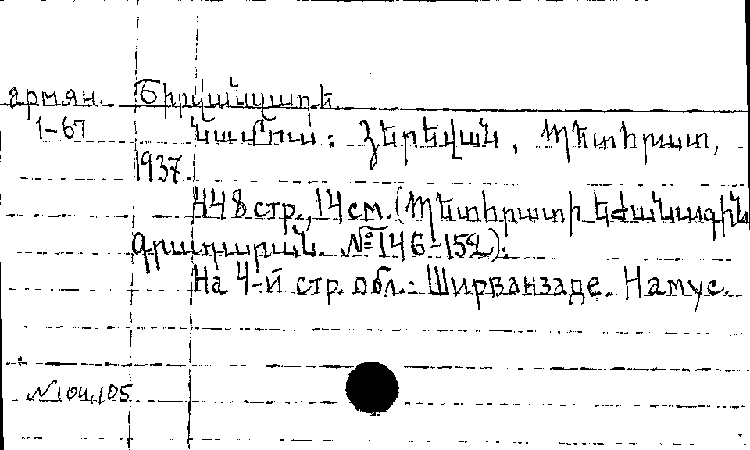 армян. Շիրվանզադե
1-67 Նամուս. Յերեվան, Պետհրատ,
1937.
448 стр., 14 см. (Պետհրատի եժանագին
գրադարան. №146-152).
На 4-й стр. обл.: Ширванзаде. Намус.
№104,105